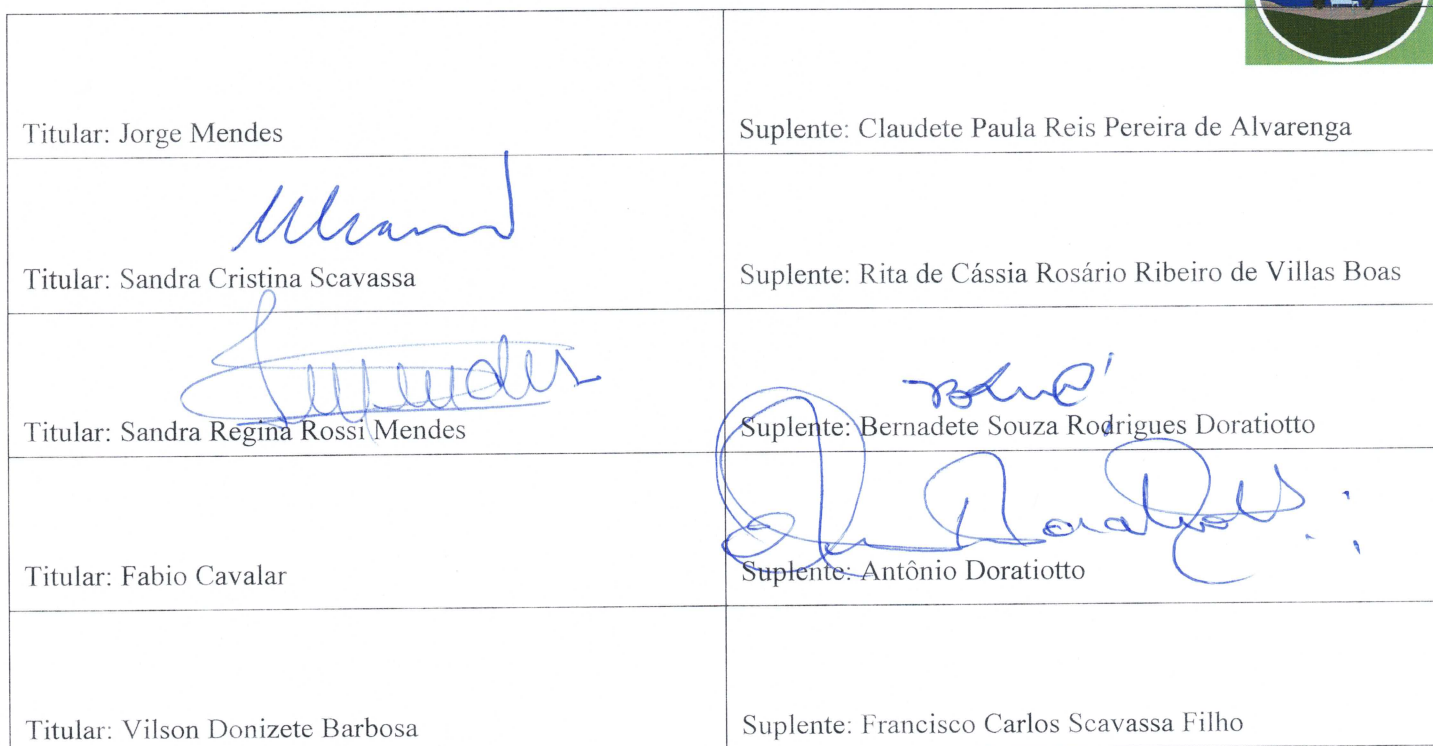 Titular: Jorge Mendes
Suplente: Claudete Paula Reis Pereira de Alvarenga
Titular: Sandra Cristina Scavassa
Suplente: Rita de Cássia Rosário Ribeiro de Villas Boas
Titular: Sandra Regina Rossi Mendes
Suplente: Bernadete Souza Rodrigues Doratiotto
Titular: Fabio Cavalar
Suplente: Antônio Doratiotto
Titular: Vilson Donizete Barbosa
Suplente: Francisco Carlos Scavassa Filho